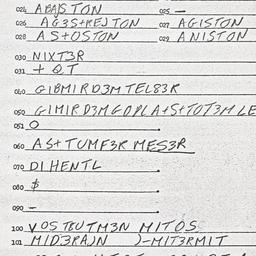 024 ABAJSTON 025 -
026 AG3S+REJTON 027 AGISTON
028 AS+OSTON 029 ANISTON
030 NIXT3R
031 + QT
040 GIBMIRD3MTEL83R
050 GIMIRD3MGOPLA+S+TOT3MLE
051 O
060 AS+TUMF3R MES3R
070 DIHENTL
080 $
090 -
100 VOSTBUTM3N MITOS
101 MID3PAJN )-MIT3RMIT